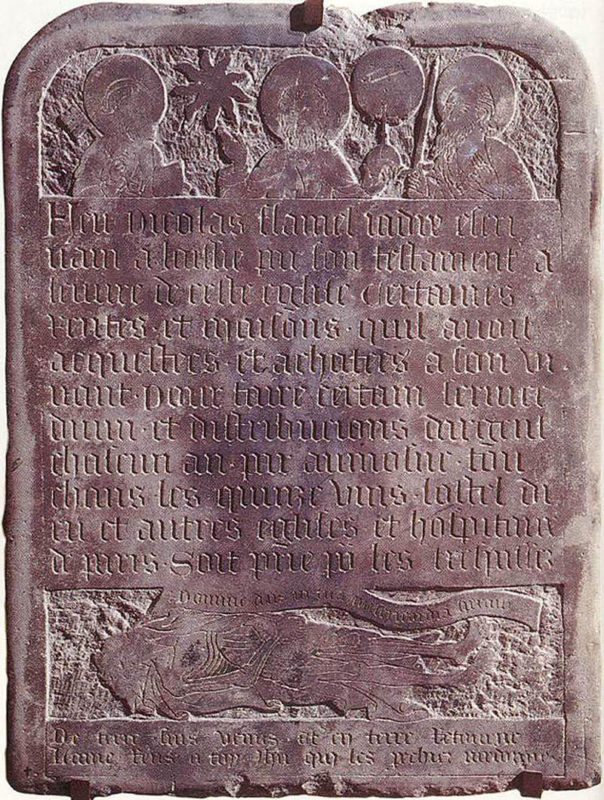 Feu nicolas flamel jadis escri
uain a laissie par son testament a
leuure de ceste eglise certaines
rentes et maisons · quil auoit
acquestees et achatees a son vi
uant · pour faire certain seruice
diuin · et distribucions dargent
chascun an · par aumosne · tou
chans les quinze vins · lostel di
eu et autres eglises et hospitaux
de paris · Soit prie po les trespassez
Domine deus in tua misericordia
De terre suis venus et en terre retourne
lame rens a toy qui les pechiez pardonne